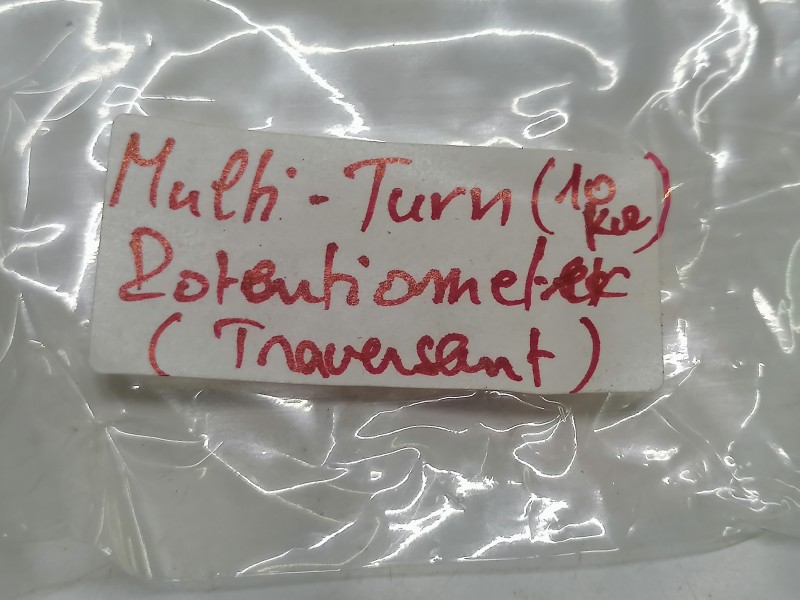 Multi-Turn (10 kΩ)
Potentiometer
(Traversant)